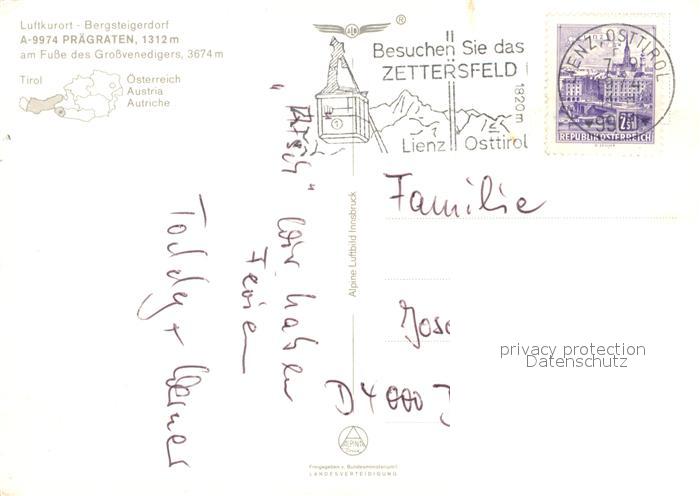 Luftkurort - Bergsteigerdorf
A-9974 PRÄGRATEN, 1312 m
am Fuße des Großvenedigers, 3674 m
Tirol
Österreich
Austria
Autriche
®
Besuchen Sie das
ZETTERSFELD
1820 m
Lienz Osttirol
LIENZ, OSTTIROL
REPUBLIK ÖSTERREICH
Alpine Luftbild Innsbruck
wir haben
Ferien
Toddy + Werner
Familie
Jose
D 4000
privacy protection
Datenschutz
ALPINE
Freigegeben v. Bundesministerium f.
LANDESVERTEIDIGUNG